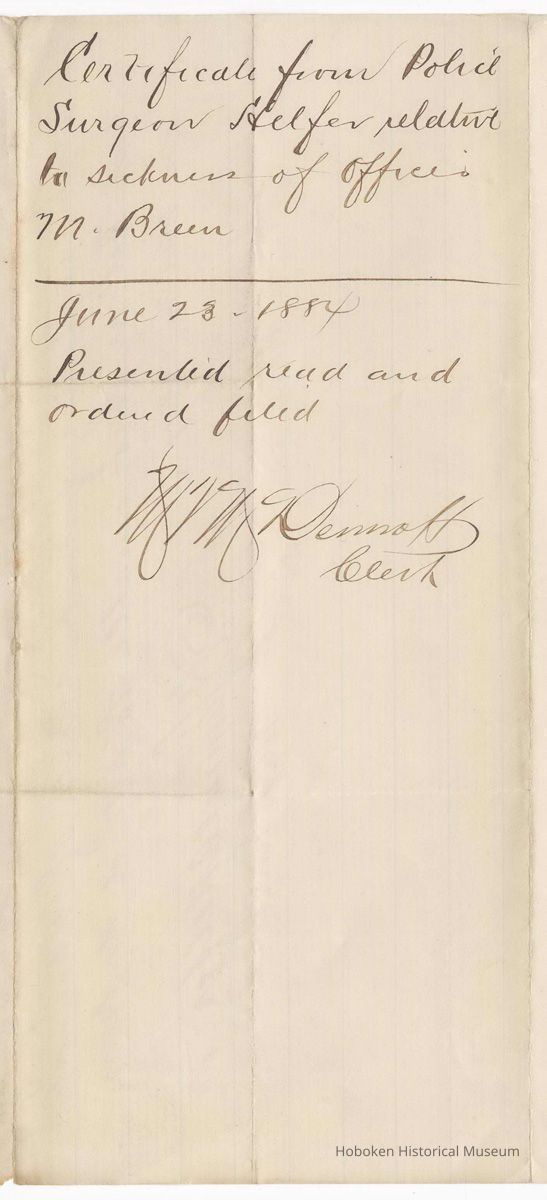 Certificate from Police
Surgeon Helfer relative
to sickness of Officer
M. Breen
June 23 - 1884
Presented read and
ordered filed
McDermott
Clerk
Hoboken Historical Museum